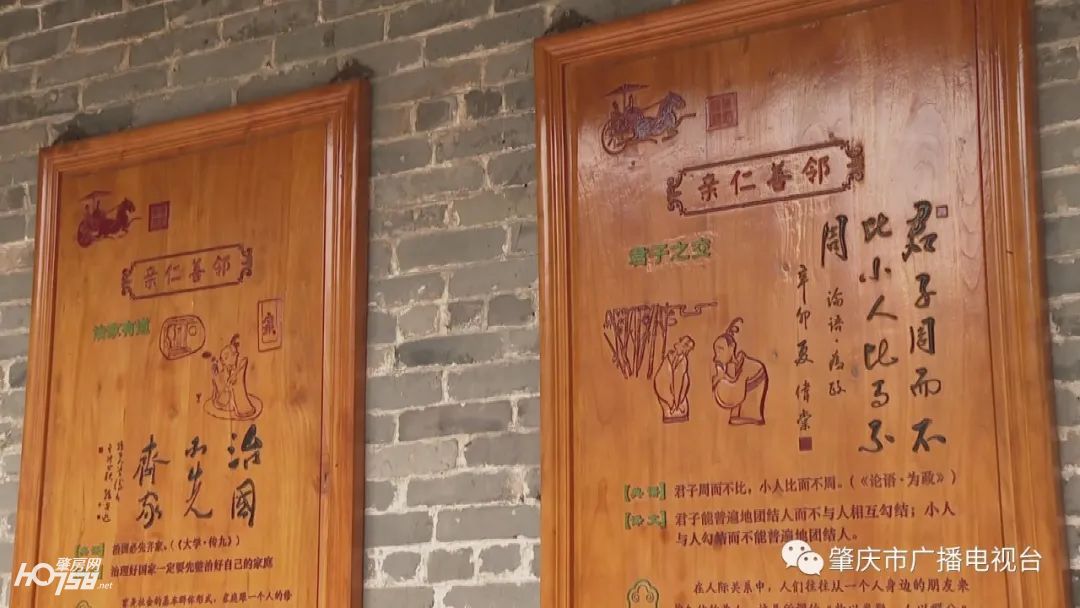 亲仁善邻
治家有道
治國
必先
齊家
【典籍】 治国必先齐家。(《大学·传九》)
治理好国家一定要先能治好自己的家庭
亲仁善邻
君子之交
君子周而不
比小人比而不
周
论语·为政
辛卯夏
【典籍】 君子周而不比，小人比而不周。(《论语·为政》)
【译文】 君子能普遍地团结人而不与人相互勾结；小人
与人勾结而不能普遍地团结人。
在人际关系中，人们往往从一个人身边的朋友来
肇庆市广播电视台
肇房网
HO758.net